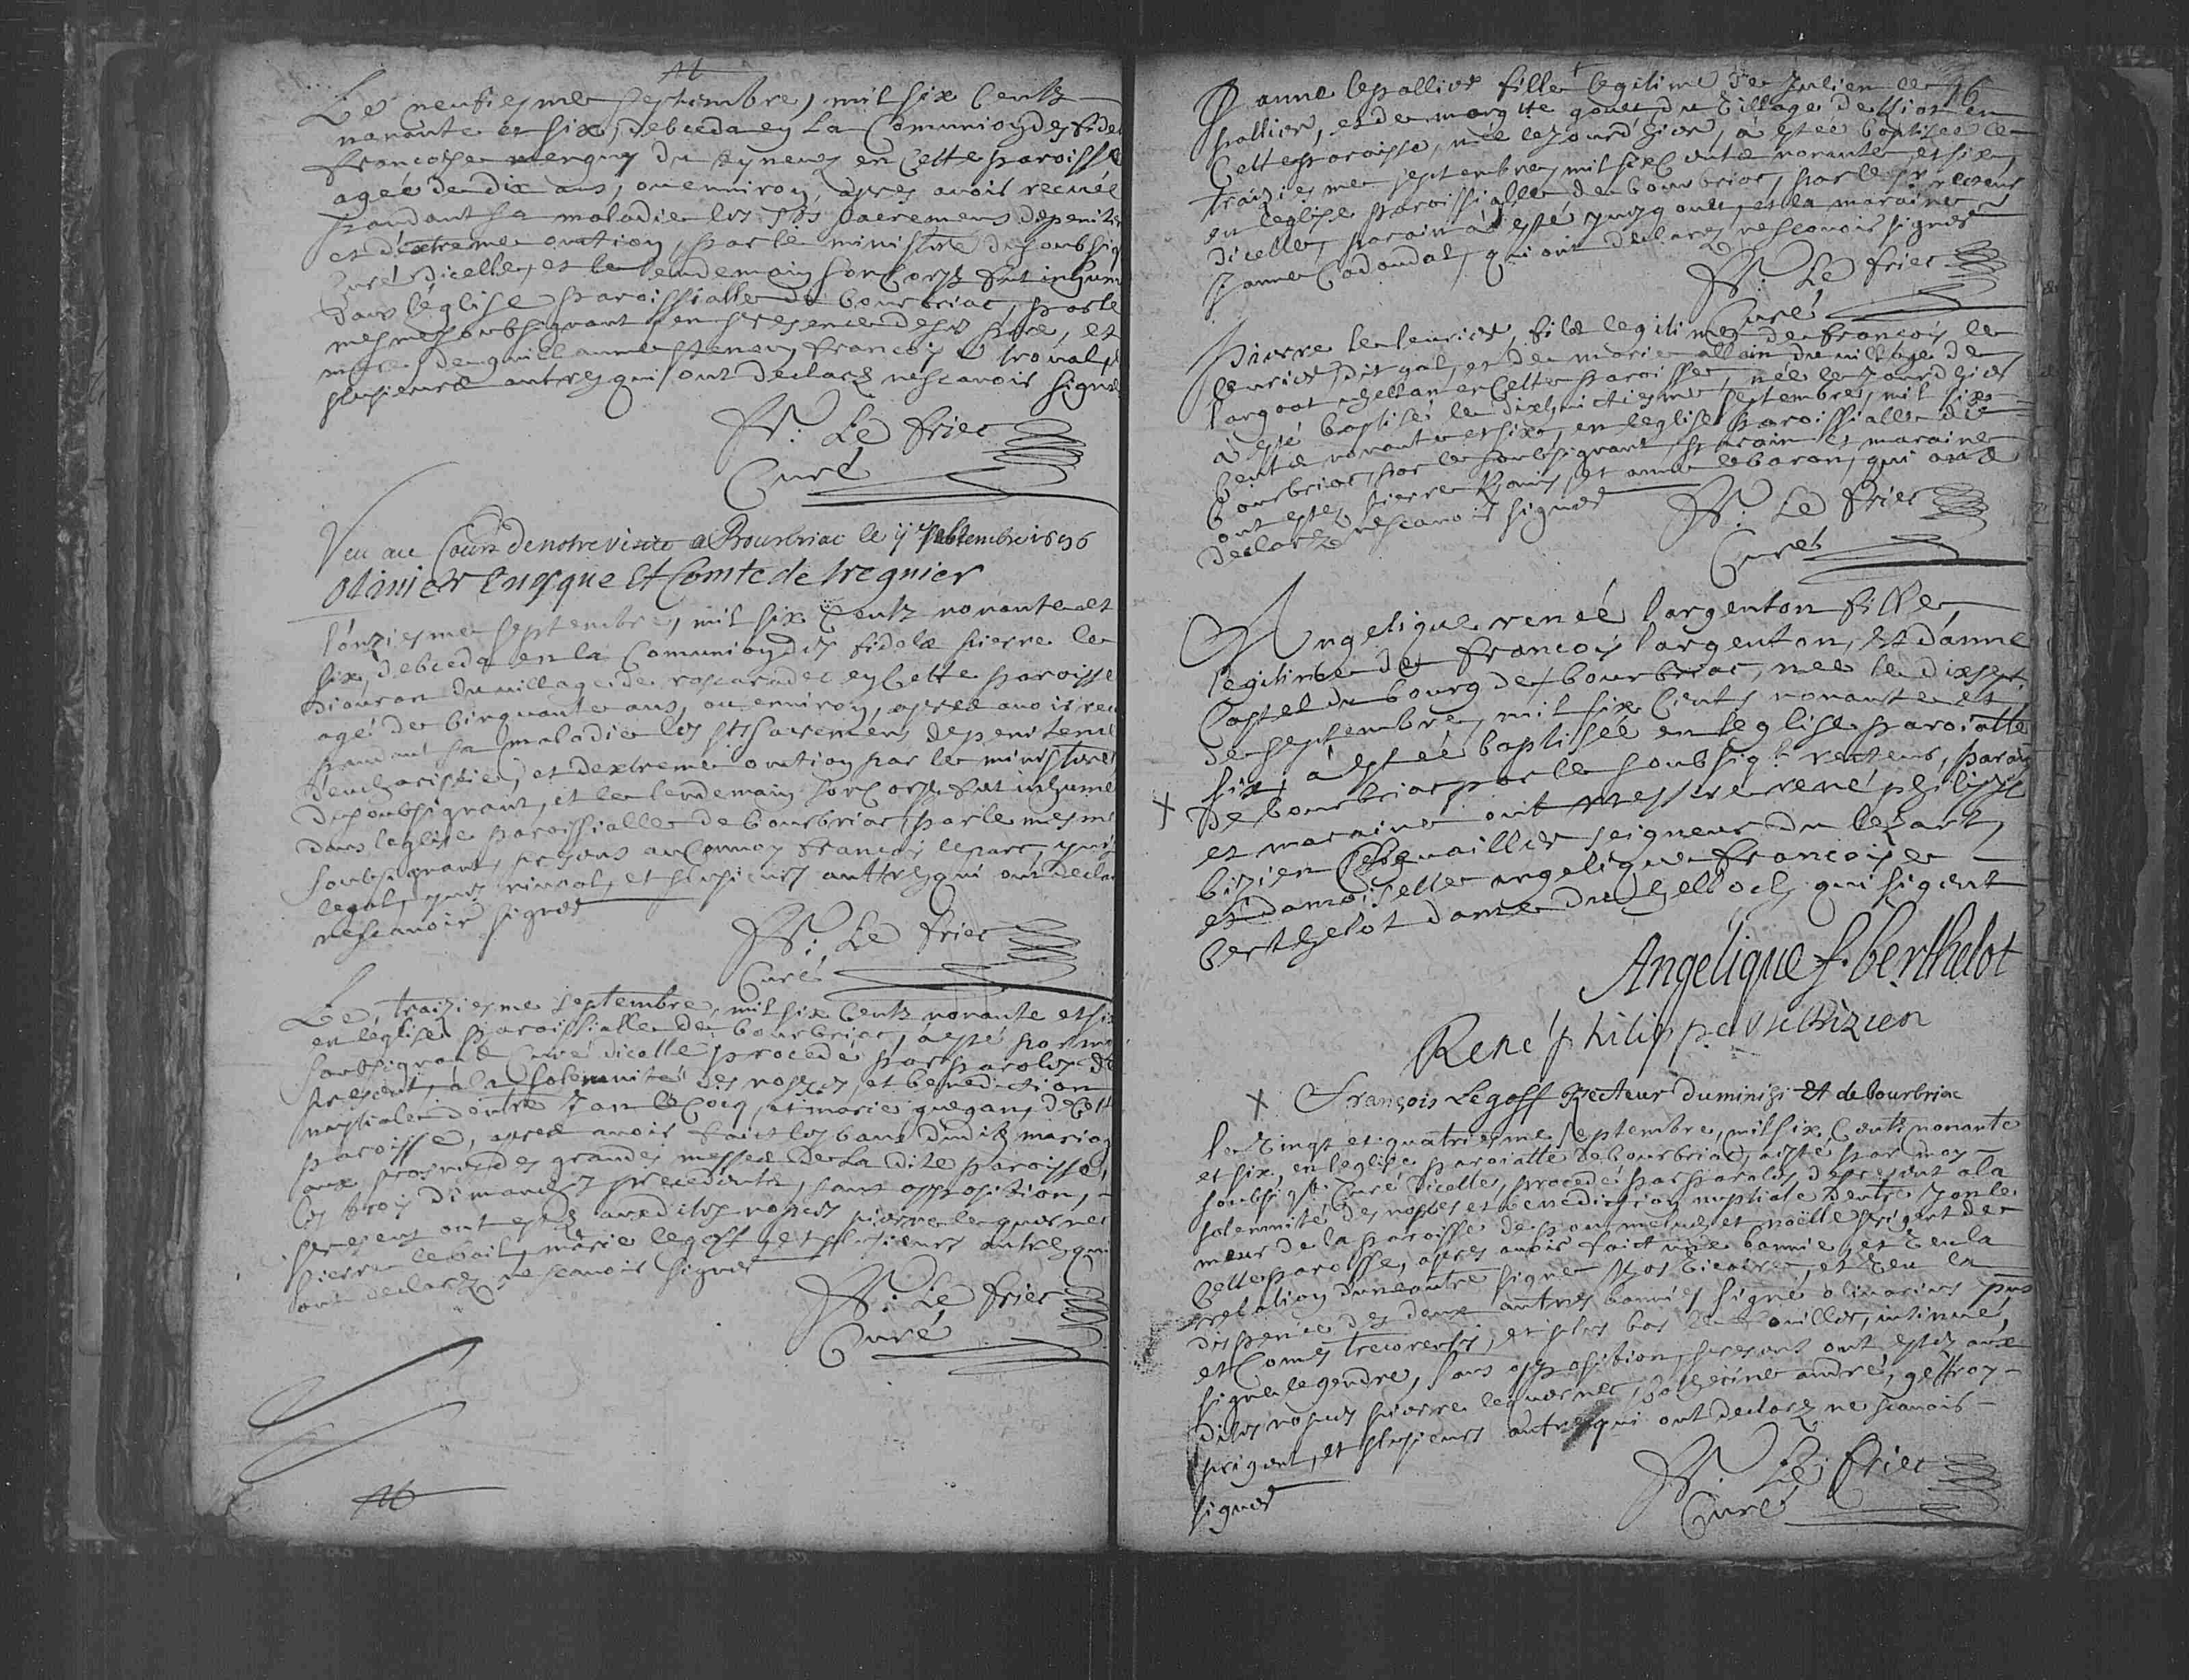 Le neufiesme septembre, mil six centz
nonante et six, debceda en la Comunion des fidel
francoise menguy du en cette paroisse
agée de dix ans, ou environ, apres avoir receüe
pandant sa maladie les sts sacremens de penite
et d'extreme onction, par le ministere du soubsig
curé d'icelle, et le lendemain son corps fut inhum
dans l'église paroissialle de bourbriac, par le
mesme soubsignant en presence de son pere, et
mere, de guillaume francois
plusieurs autres qui ont declaré ne scavoir signer
Le friec
Curé
Veu au Cours de notre visite a Bourbriac le 11 septembre 1696
Olivier Evesque Et Comte de treguier
l'onziesme septembre, mil six centz nonante et
six, debceda en la Comunion des fidels pierre le
diouron du village de en cette paroisse
agé de cinquante ans, ou environ, apres avoir rec
pandant sa maladie les sts sacremens de penitence
d'eucharistie, et d'extreme onction par le ministere
du soubsignant, et le lendemain son corps fut inhumé
dans l'eglise paroissialle de bourbriac, par le mesme
soubsignant, presens au Convoy francois le parc, yves
le gal, yves rivoal, et plusieurs auttres qui ont declaré
ne scavoir signer
Le friec
Curé
Le traiziesme septembre, mil six centz nonante et six
en l'eglise paroissialle de bourbriac, a esté par moy
soubsignant Curé d'icelle procedé par parolles de
present, a la solemnité des nopces, et benediction
nuptiale d'entre Jan le Cocq, et marie guegan, de cette
paroisse, apres avoir faict les bans dudit mariage
aux prosnes des grandes messes de la dite parroisse,
les trois dimanches precedents, sans opposition,
presens ont estez auxdites nopces pierre le guerner
pierre le bail, marie le goff, et plusieurs autres qui
ont declaré ne scavoir signer
Le friec
Curé
96
Janne le pallier fille legitime de Julien le
pallier, et de margtte gouez du village de en
Cette paroisse, née le jourd'hier, a estée baptisée le
traiziesme septembre, mil six cents nonante et six,
en l'eglise paroissialle de bourbriac, par le sr recteur
d'icelle, parain a esté yves et la maraine
Janne Cadoudal, qui ont declaré ne scavoir signer
Le friec
Curé
pierre le leurier, fils legitime de francois le
leurier, dit gal, et de marie allain du village de
en cette paroisse, né le jourd'hier
a esté baptisé le dixhuictiesme septembre, mil six
cents nonante et six, en l'eglise paroissialle de
bourbriac, par le soubsignant, parain et maraine
ont estez pierre et anne le baron, qui ont
declaré ne scavoir signer
Le friec
Curé
Angelique renée l'argenton fille
legitime de francois l'argenton, et d'anne
Castel du bourg de bourbriac, née le dixsept
de septembre, mil six cents nonante et
six, a estée baptisée en l'eglise paroialle
X de bourbriac par le soubsigt recteur, parain
et maraine ont Messire rené philippe
bizien seigneur du lezart,
et damoiselle angelique francoise
berthelot dame du qui signent
Angélique f. berthelot
René philippe Bizien
X François Legoff Recteur du minihi et de bourbriac
le Vingt et quatriesme septembre, mil six cents nonante
et six, en l'eglise paroialle de bourbriac, a esté par moy
soubsigt Curé d'icelle, procedé par parolles de present a la
solemnité des nopces et benediction nuptiale d'entre yon le
meur de la paroisse de ploumelve, et noëlle prigent de
Cette paroisse, apres avoir faict une bannie, et veu la
relation d'une autre signé vicaire, et veu la
dispence des deux autres bannies signé olivarius
et Comes trecorensis, et plus bas intimué,
signé legendre, sans opposition, presens ont estez aux
dites nopces pierre le guerner, Catherine andré, geffroy
prigent, et plusieurs autres qui ont declaré ne scavoir
signer
Le friec
Curé